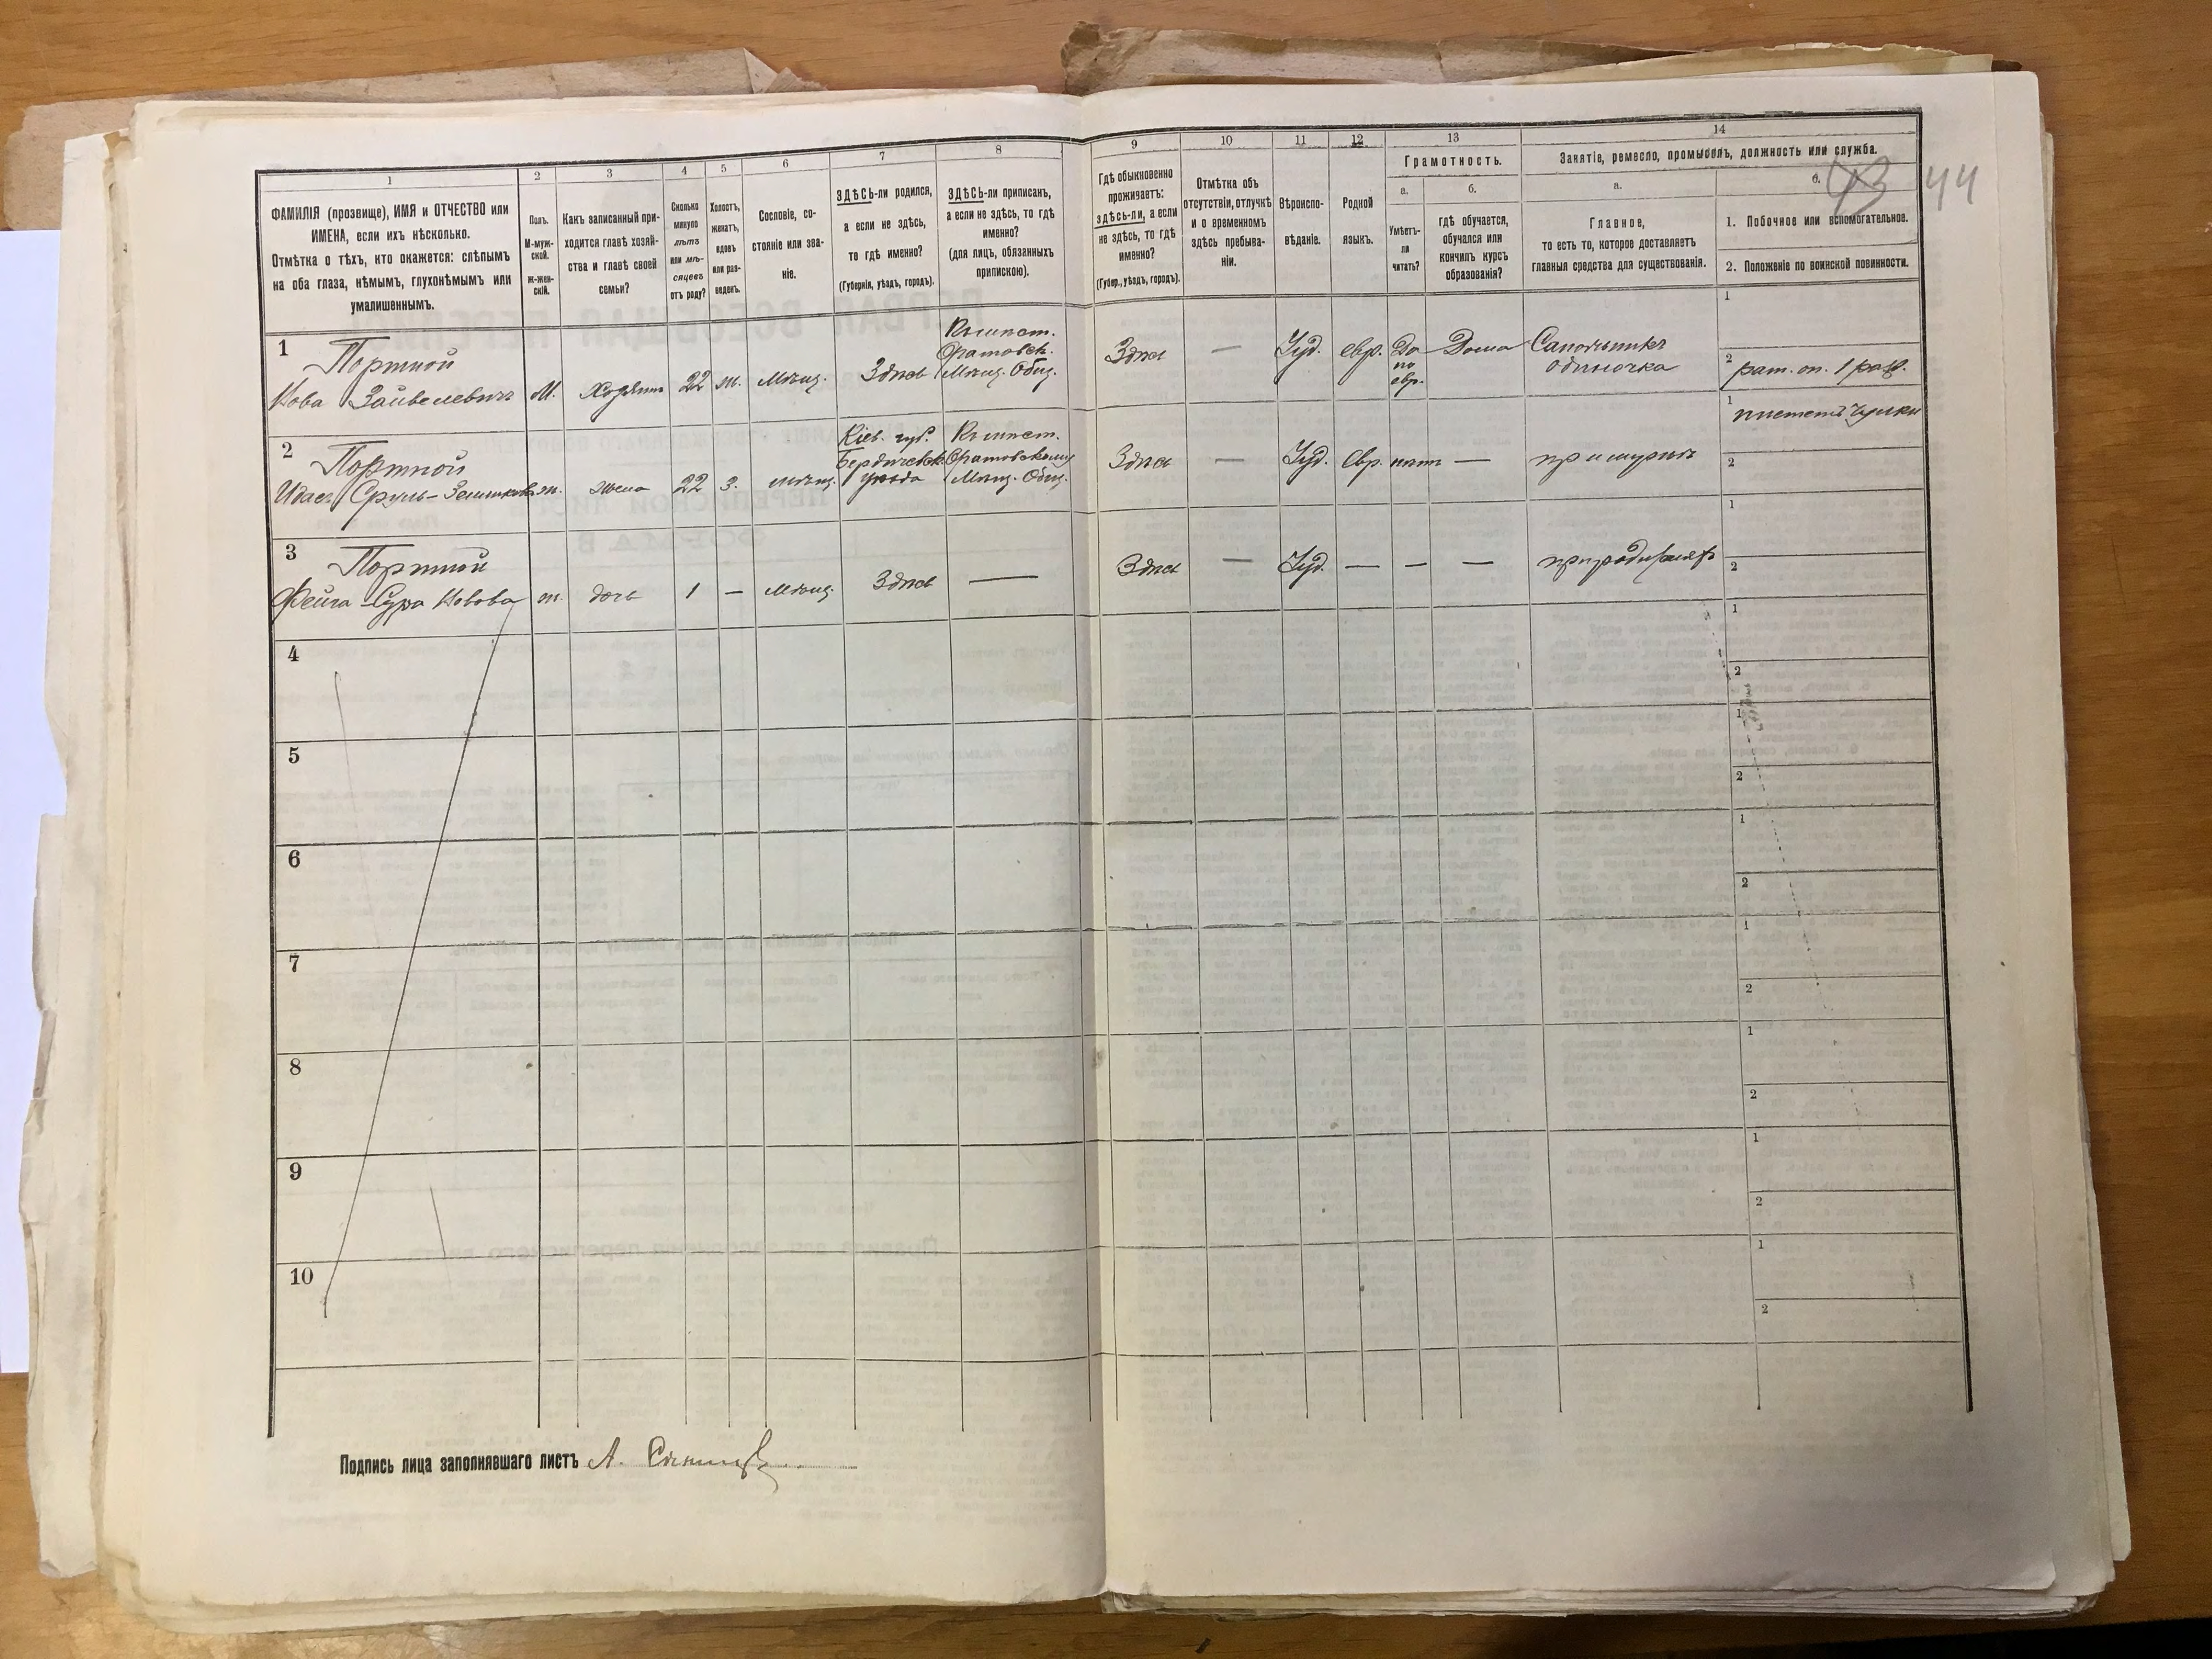 1
2
3
4
5
6
7
8
9
10
11
12
13
14
ФАМИЛІЯ (прозвище), ИМЯ и ОТЧЕСТВО или
ИМЕНА, если ихъ нѣсколько.
Отмѣтка о тѣхъ, кто окажется: слѣпымъ
на оба глаза, нѣмымъ, глухонѣмымъ или
умалишеннымъ.
Полъ.
М-муж-
ской.
Ж-жен-
скій.
Какъ записанный при-
ходится главѣ хозяй-
ства и главѣ своей
семьи?
Сколько
минуло
лѣтъ
или мѣ-
сяцевъ
отъ роду?
Холостъ,
женатъ,
вдовъ
или раз-
веденъ.
Сословіе, со-
стояніе или зва-
ніе.
ЗДѢСЬ-ли родился,
а если не здѣсь,
то гдѣ именно?
(Губернія, уѣздъ, городъ).
ЗДѢСЬ-ли приписанъ,
а если не здѣсь, то гдѣ
именно?
(для лицъ, обязанныхъ
припискою).
Гдѣ обыкновенно
проживаетъ:
здѣсь-ли, а если
не здѣсь, то гдѣ
именно?
(Губер., уѣздъ, городъ).
Отмѣтка объ
отсутствіи, отлучкѣ
и о временномъ
здѣсь пребыва-
ніи.
Вѣроиспо-
вѣданіе.
Родной
языкъ.
Грамотность.
а.
Умѣетъ-
ли
читать?
б.
гдѣ обучается,
обучался или
кончилъ курсъ
образованія?
Занятіе, ремесло, промыселъ, должность или служба.
а.
Главное,
то есть то, которое доставляетъ
главныя средства для существованія.
б.
1. Побочное или вспомогательное.
2. Положеніе по воинской повинности.
43 44
1
Портной
Нова Зайвелевичъ
М.
Хозяинъ
22
ж.
Мѣщ.
Здѣсь
Къ мѣст.
Оратовск.
Мѣщ. Общ.
Здѣсь
—
Іуд.
евр.
Да
по
евр.
Дома
Сапожникъ
одиночка
1
2 рат. оп. 1 разр.
2
Портной
ж.
жена
22
З.
мѣщ.
Кіев. губ.
Бердичевск.
уѣзда
Къ мѣст.
Оратовскому
Мѣщ. Общ.
Здѣсь
—
Іуд.
Евр.
нѣтъ
—
при мужѣ
1 плететъ чулки
2
3
Портной
Фейга-Сура Новова
ж.
дочь
1
—
Мѣщ.
Здѣсь
—
Здѣсь
—
Іуд.
—
—
—
при родителяхъ
1
2
4
1
2
5
1
2
6
1
2
7
1
2
8
1
2
9
1
2
10
1
2
Подпись лица заполнявшаго листъ А.